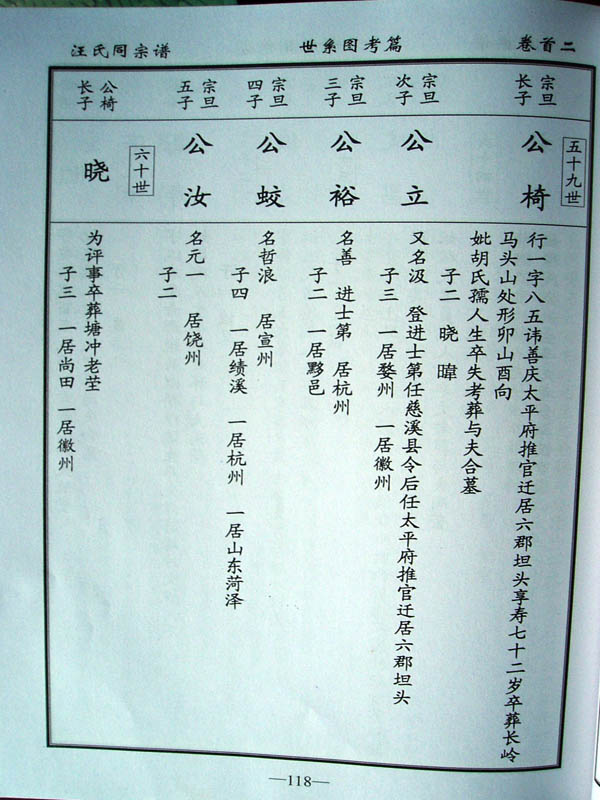 汪氏同宗谱
世系图考篇
卷首二
五十九世
宗旦
长子
公椅
行一字八五讳善庆太平府推官迁居六郡坦头享寿七十二岁卒葬长岭
马头山处形卯山酉向
妣胡氏孺人生卒失考葬与夫合墓
子二 晓 暐
宗旦
次子
公立
又名汲 登进士第任慈溪县令后任太平府推官迁居六郡坦头
子三 一居婺州 一居徽州
宗旦
三子
公裕
名善 进士第 居杭州
子二 一居黟邑
宗旦
四子
公蛟
名哲浪 居宣州
子四 一居绩溪 一居杭州 一居山东菏泽
宗旦
五子
公汝
名元一 居饶州
子二
六十世
公椅
长子
晓
为评事卒葬塘冲老茔
子三 一居尚田 一居徽州
—118—